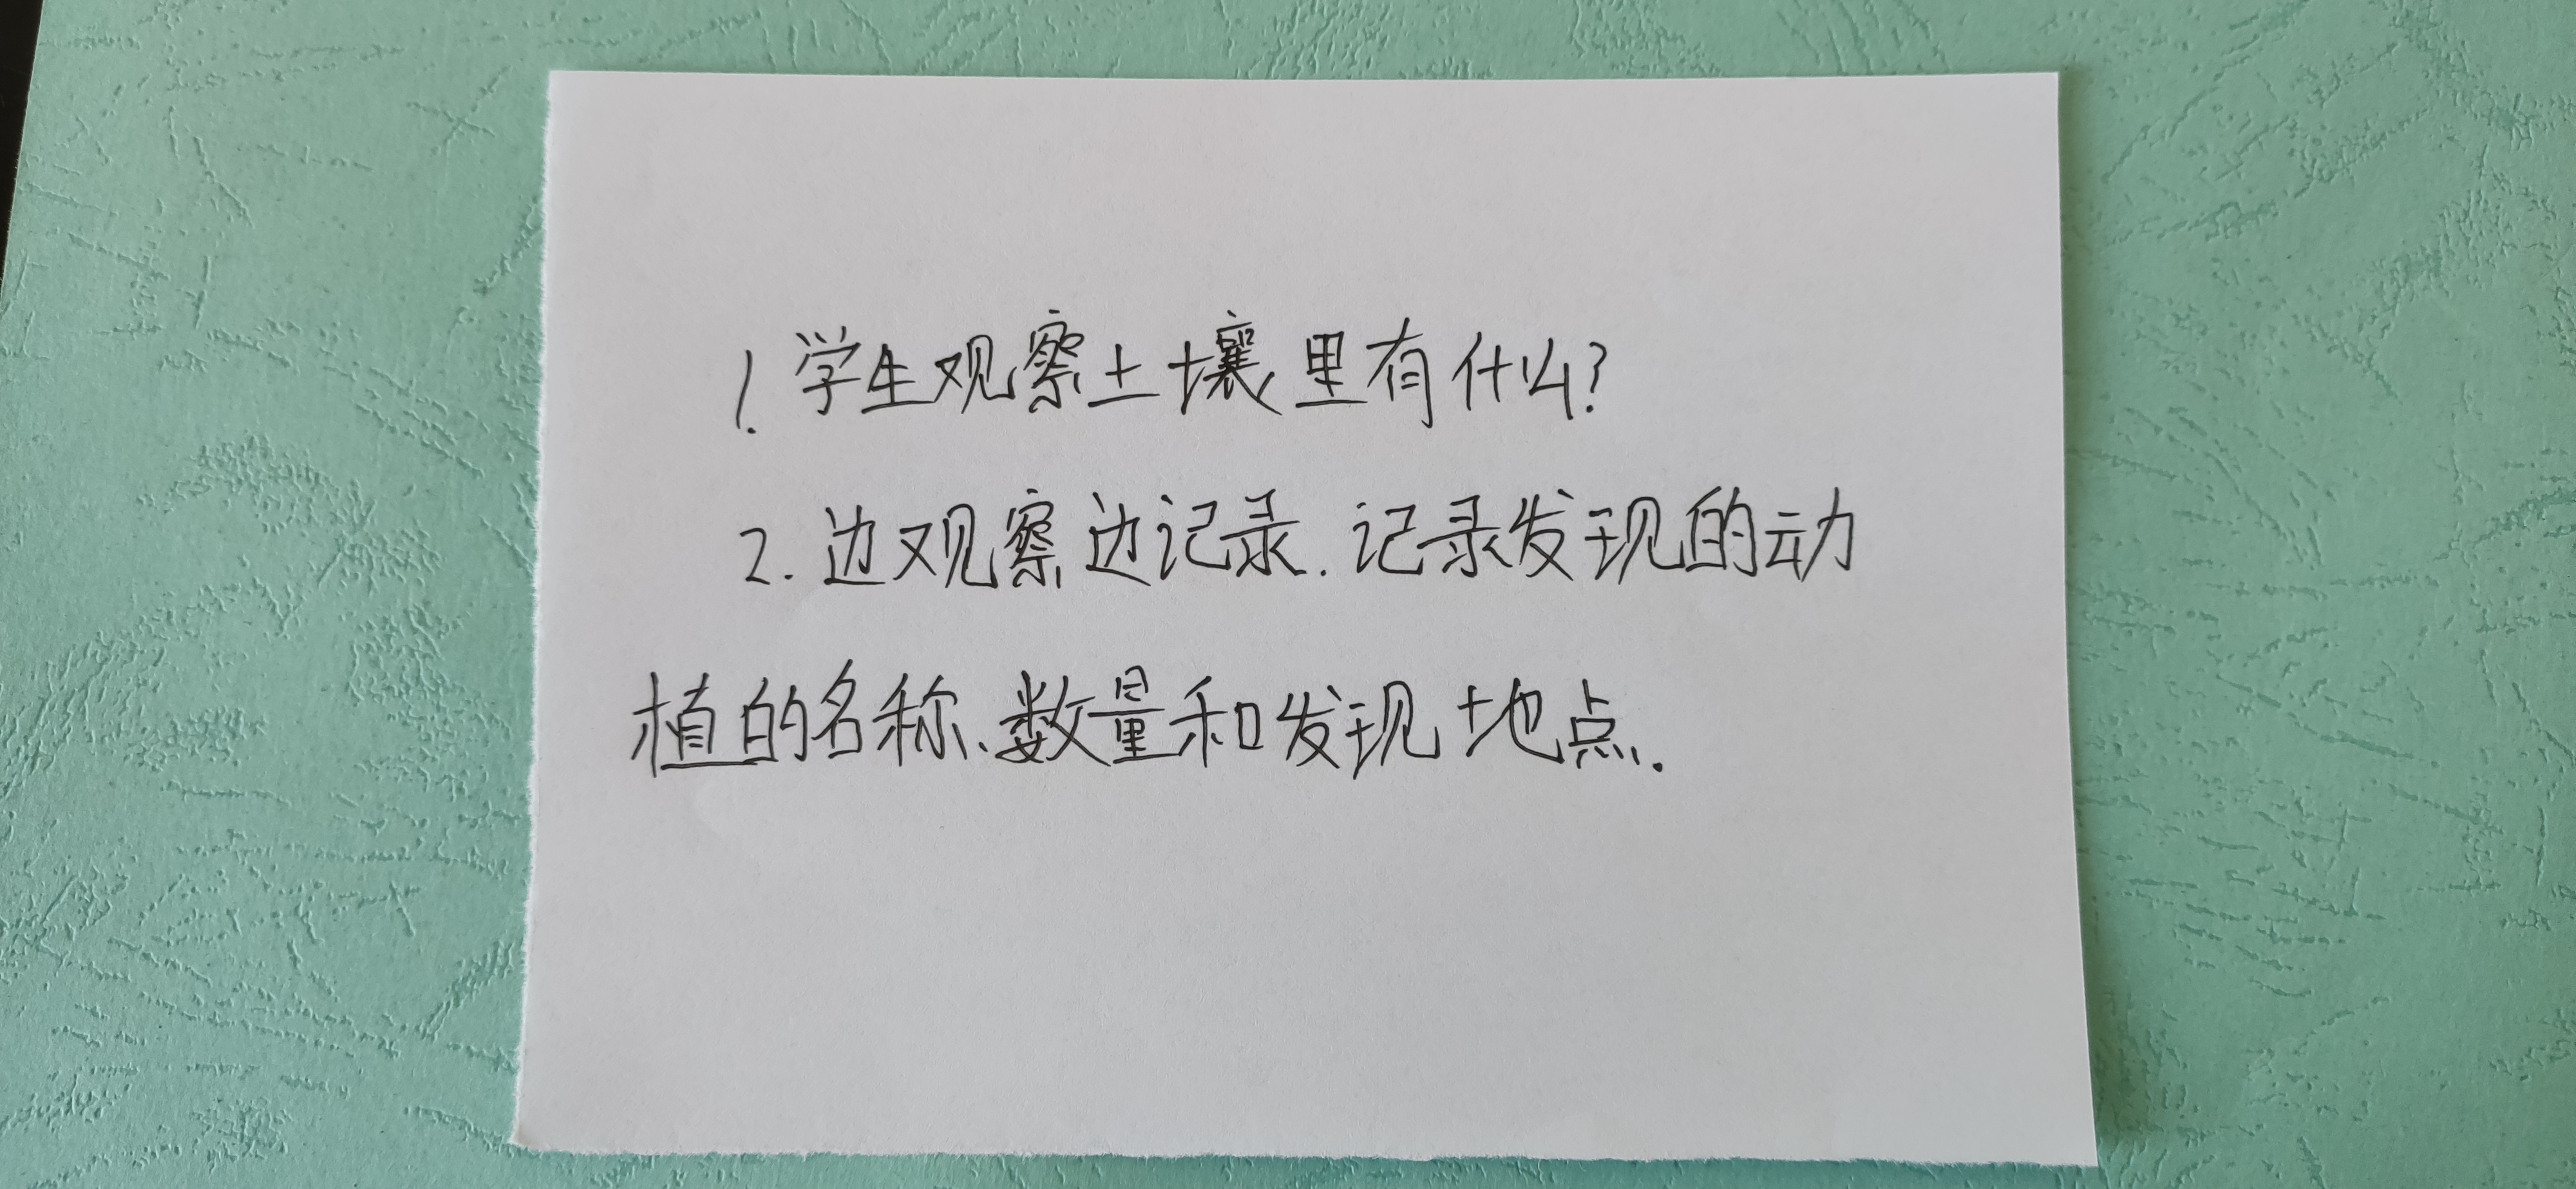 1. 学生观察土壤里有什么?
2. 边观察边记录. 记录发现的动
植的名称、数量和发现地点.